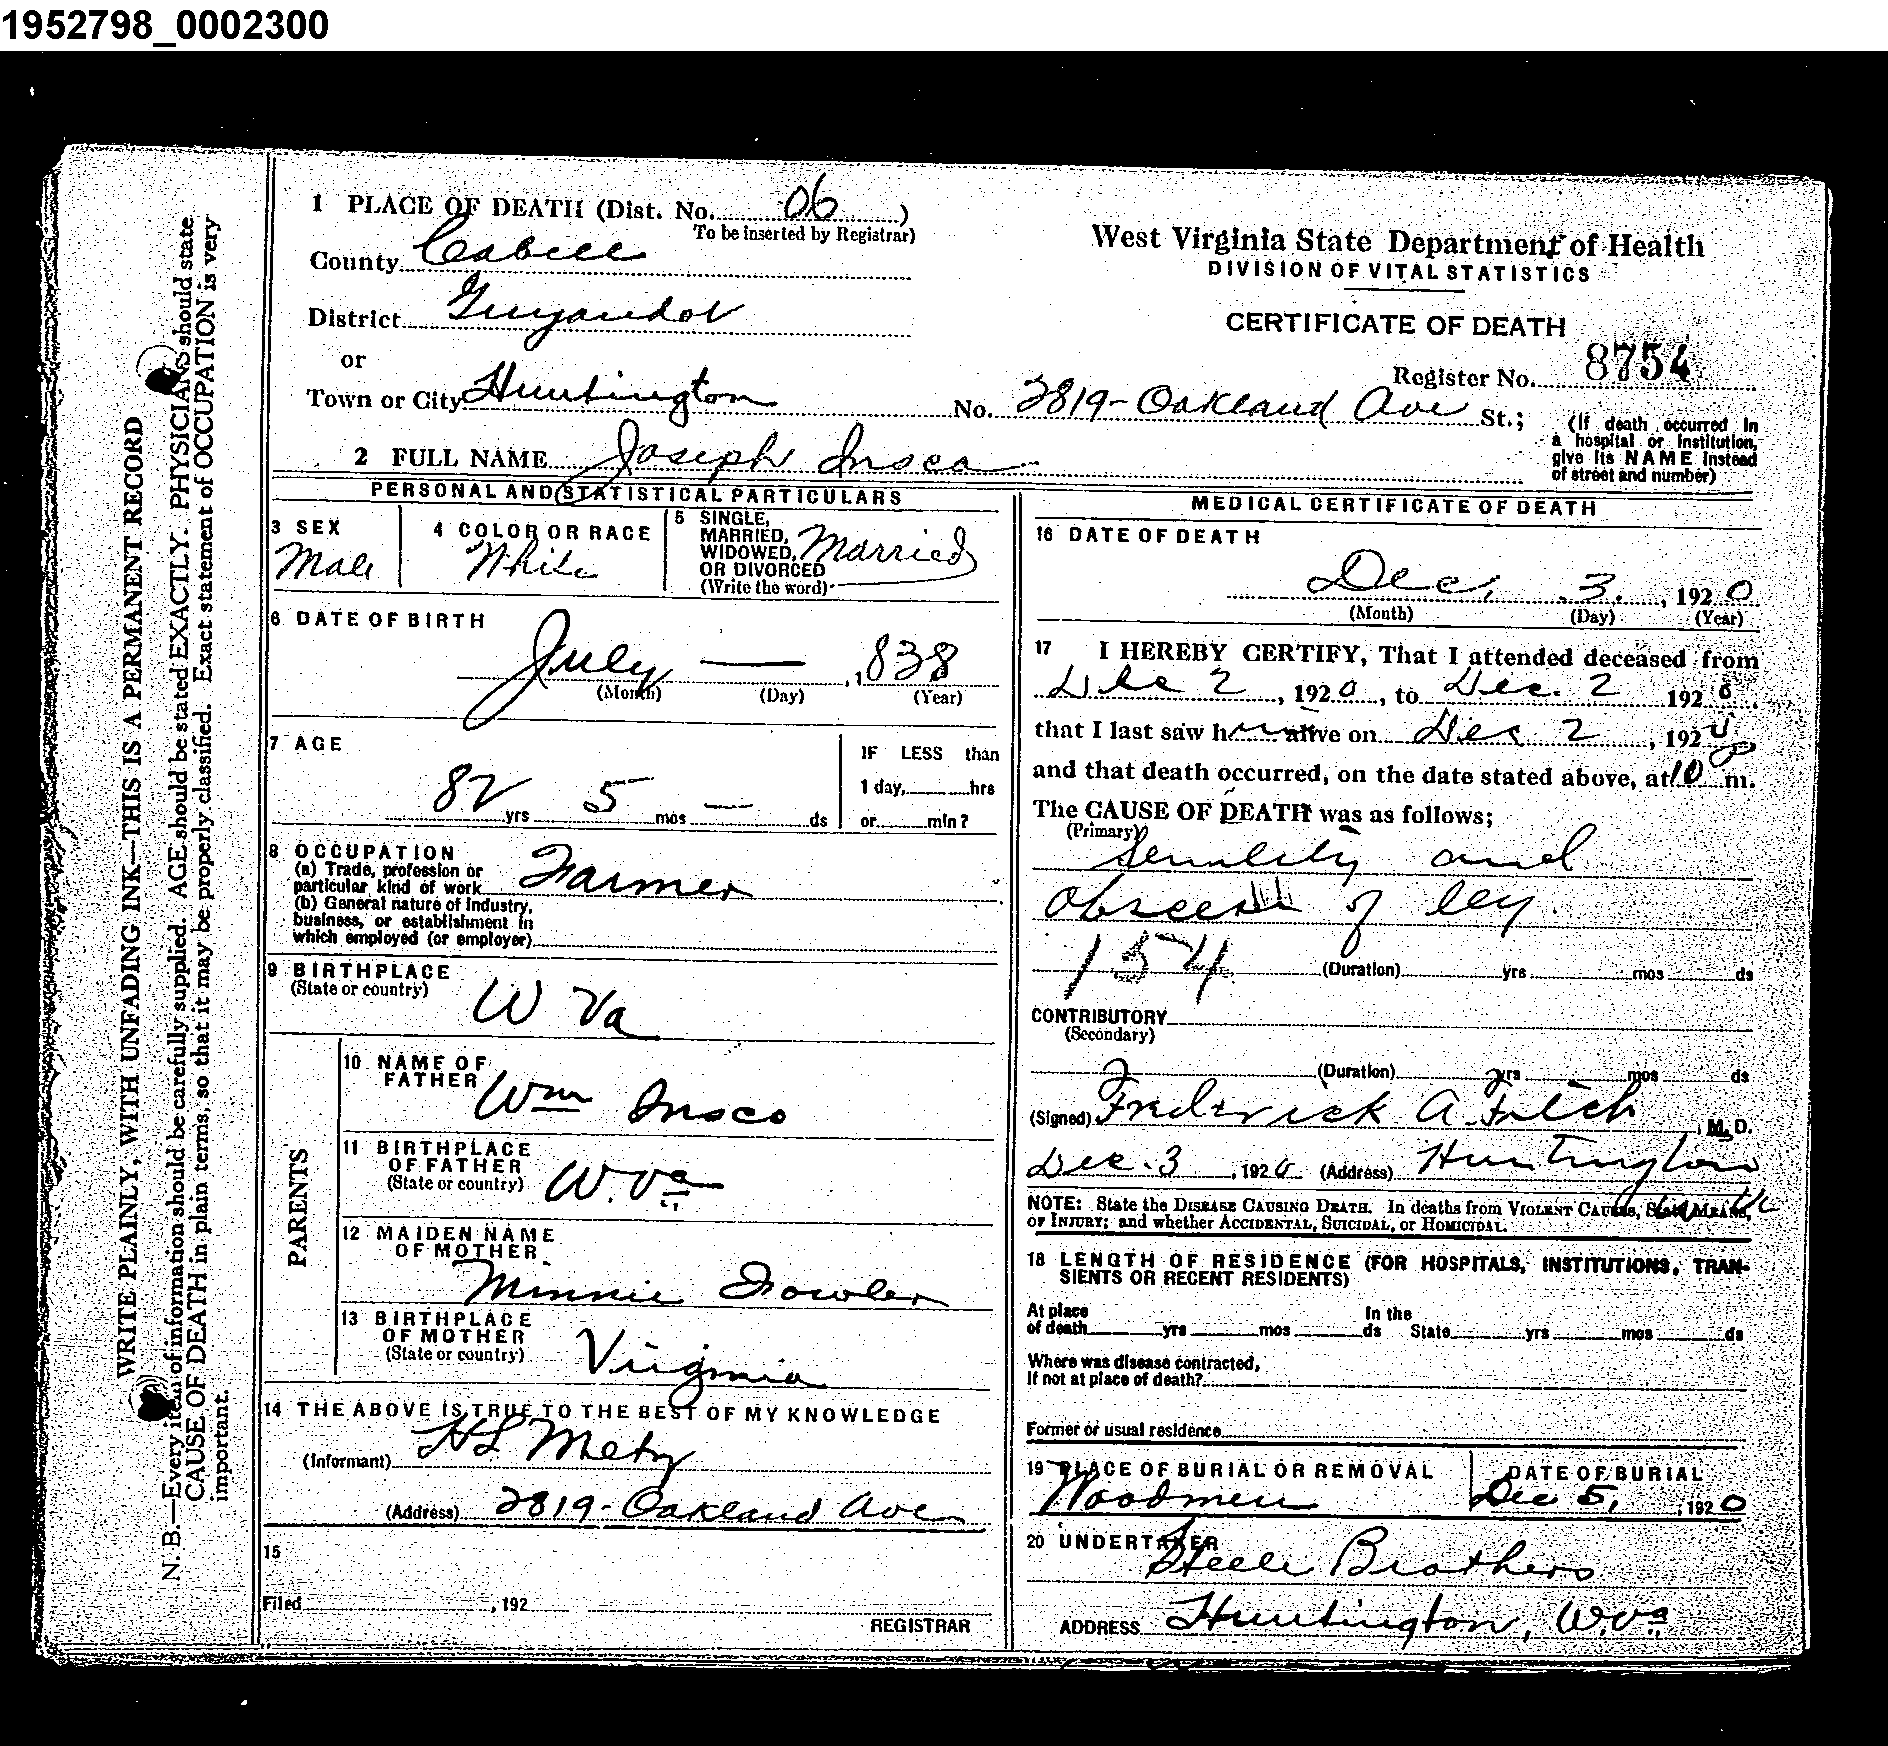 1952798_0002300
WRITE PLAINLY, WITH UNFADING INK—THIS IS A PERMANENT RECORD
N. B.—Every item of information should be carefully supplied. AGE should be stated EXACTLY. PHYSICIANS should state
CAUSE OF DEATH in plain terms, so that it may be properly classified. Exact statement of OCCUPATION is very
important.
1 PLACE OF DEATH (Dist. No. 06 )
To be inserted by Registrar)
County Cabell
District Guyandot
or
Town or City Huntington No. 2819- Oakland Ave St.;
2 FULL NAME Joseph Insco
West Virginia State Department of Health
DIVISION OF VITAL STATISTICS
CERTIFICATE OF DEATH
Register No. 8754
(If death occurred in
a hospital or institution,
give its NAME instead
of street and number)
PERSONAL AND STATISTICAL PARTICULARS
3 SEX
Male
4 COLOR OR RACE
White
5 SINGLE,
MARRIED,
WIDOWED,
OR DIVORCED
(Write the word)
Married
6 DATE OF BIRTH
July — , 1838
(Month) (Day) (Year)
7 AGE
82 yrs 5 mos — ds
IF LESS than
1 day, hrs
or min?
8 OCCUPATION
(a) Trade, profession or
particular kind of work Farmer
(b) General nature of Industry,
business, or establishment in
which employed (or employer)
9 BIRTHPLACE
(State or country) W Va
PARENTS
10 NAME OF
FATHER Wm Insco
11 BIRTHPLACE
OF FATHER
(State or country) W. Va
12 MAIDEN NAME
OF MOTHER
Minnie Fowler
13 BIRTHPLACE
OF MOTHER
(State or country) Virginia
14 THE ABOVE IS TRUE TO THE BEST OF MY KNOWLEDGE
(Informant) H L Metz
(Address) 2819- Oakland Ave
15
Filed , 192
REGISTRAR
MEDICAL CERTIFICATE OF DEATH
16 DATE OF DEATH
Dec. 3. , 1920
(Month) (Day) (Year)
17 I HEREBY CERTIFY, That I attended deceased from
Dec 2 , 1920 , to Dec. 2 1920
that I last saw him alive on Dec 2 , 1920
and that death occurred, on the date stated above, at 10 P m.
The CAUSE OF DEATH was as follows;
(Primary)
Senility and
obscess of leg.
154
(Duration) yrs mos ds
CONTRIBUTORY
(Secondary)
(Duration) yrs mos ds
(Signed) Frederick A. Fitch , M. D.
Dec. 3 , 1920 (Address) Huntington
NOTE: State the DISEASE CAUSING DEATH. In deaths from VIOLENT CAUSES, State MEANS
OF INJURY; and whether ACCIDENTAL, SUICIDAL, or HOMICIDAL.
18 LENGTH OF RESIDENCE (FOR HOSPITALS, INSTITUTIONS, TRAN-
SIENTS OR RECENT RESIDENTS)
At place In the
of death yrs mos ds State yrs mos ds
Where was disease contracted,
If not at place of death?
Former or usual residence
19 PLACE OF BURIAL OR REMOVAL
Woodmere
DATE OF BURIAL
Dec 5, , 1920
20 UNDERTAKER
Steele Brothers
ADDRESS Huntington, W. Va